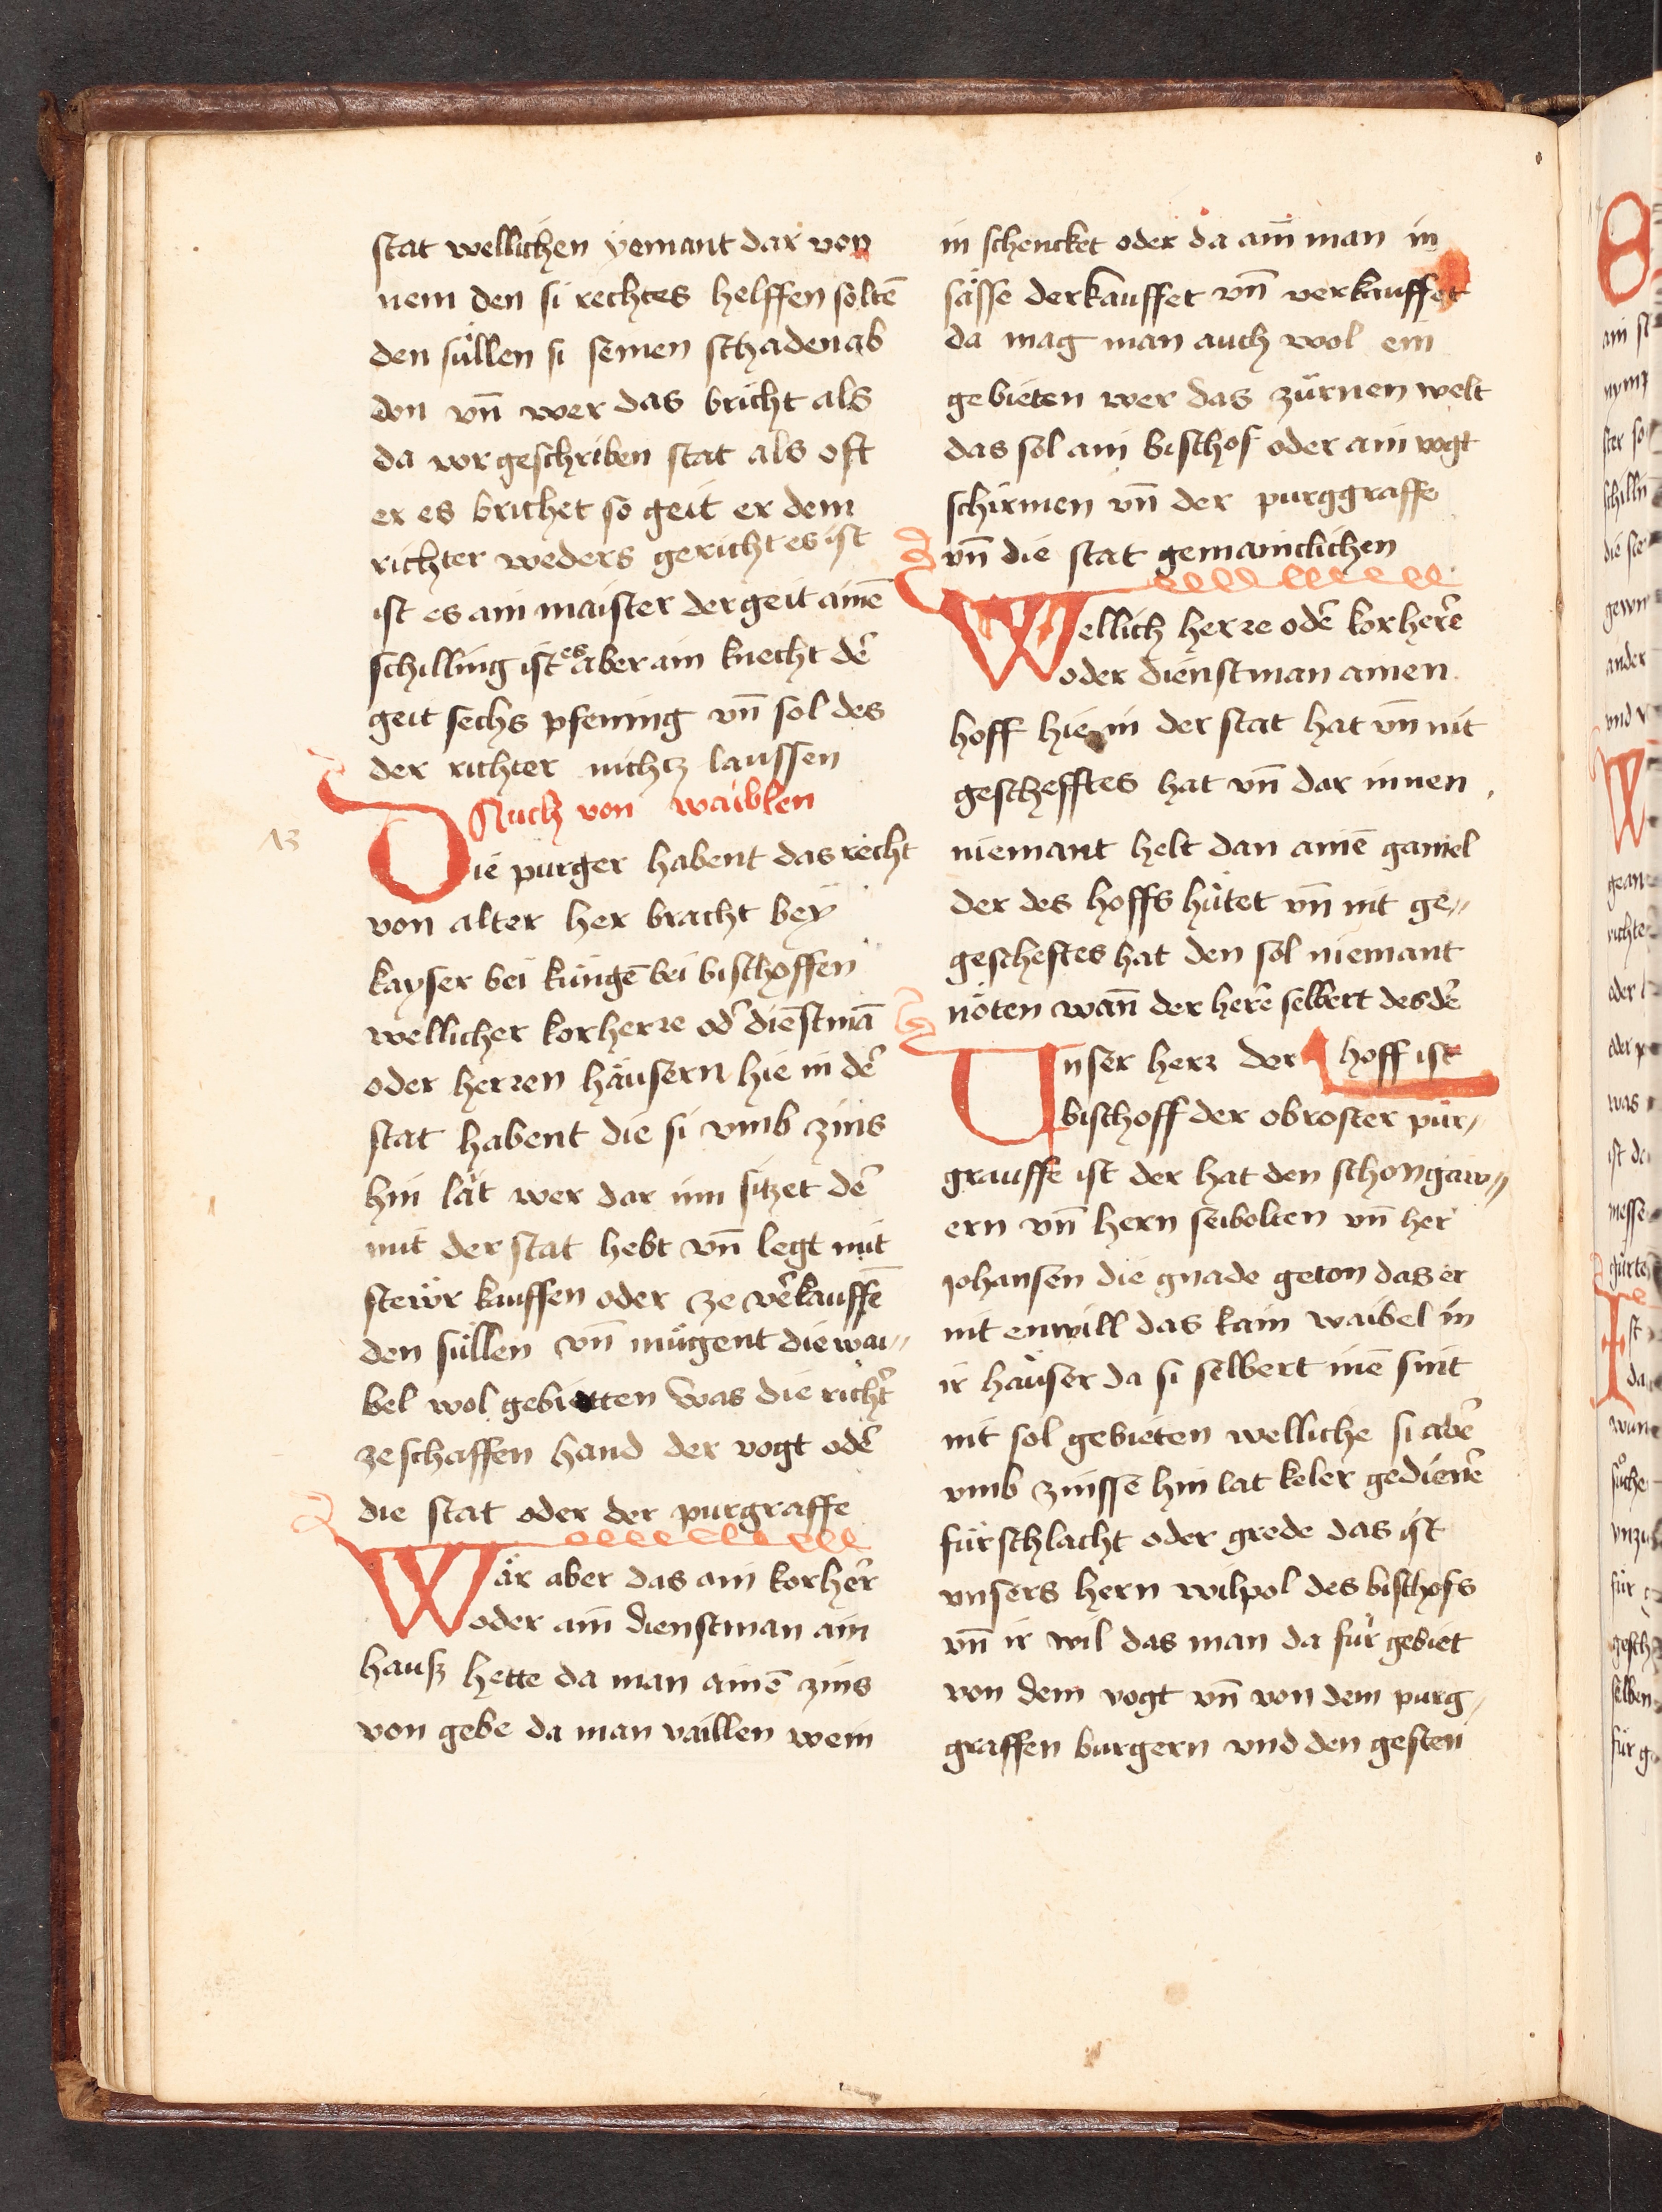 stat wellichen yemant dar von
nem den si rechtes helffen soltē
den süllen si seinen schaden ab
don vn̄ wer das bricht als
da vorgeschriben stat als oft
er es brichet so geit er dem
richter weders gericht es ist
ist es ain maister der geit ainē
schilling ist es aber ain knecht dē
geit sechs pfening vn̄ sol des
der richter nichtz laussen
Auch von waiblen
13
Die purger habent das recht
von alter her bracht bey
kayser bei küngē bei bischoffen
wellicher korherre od̄ dienstmā
oder herren häusern hie in dē
stat habent die si vmb zins
hin lät wer dar inn sitzet dē
mit der stat hebt vn̄ legt mit
stewr kauffen oder ze vērkauffē
den süllen vn̄ mügent die wai„
bel wol gebietten was die richt̄
ze schaffen hand der vogt odē
die stat oder der purgraffe
Wär aber das ain korhēr
oder ain dienstman ain
hausz hette da man ainē zins
von gebe da man vaillen wein
in schencket oder da ain man in
sässe der kauffet vn̄ verkauffet
da mag man auch wol ein
gebieten wer das zürnen welt
das sol ain bischof oder ain vogt
schirmen vn̄ der purggraffe
vn̄ die stat gemainclichen
Wellich herre odē korherē
oder dienstman ainen
hoff hie in der stat hat vn̄ nit
geschefftes hat vn̄ dar innen
niemant helt dan ainē gamel
der des hoffs hütet vn̄ nit ge„
gescheftes hat den sol niemant
nöten wan̄ der herē selbert des dē
hoff ist
Unser herr der
bischoff der obroster pur„
grauffe ist der hat den schongaw„
ern vn̄ hern seibolten vn̄ her
johansen die gnade geton das er
nit enwill das kain waibel in
ir häuser da si selbert inē sint
nit sol gebieten welliche si abē
vmb zinsse hin lat keler gedienē
fürschlacht oder grede das ist
vnsers hern wilpol des bischofs
vn̄ ir wil das man da für gebiet
von dem vogt vn̄ von dem purg„
graffen burgern vnd den gesten